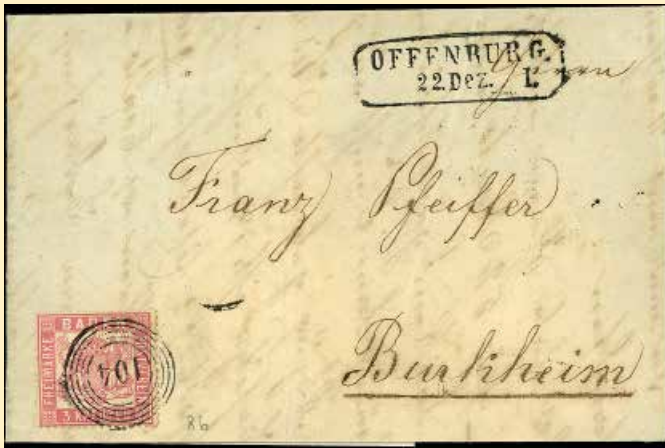 OFFENBURG.
22.Dez. L.
Herrn
Franz Pfeiffer
Burkheim
BADEN
FREIMARKE
3 K
104